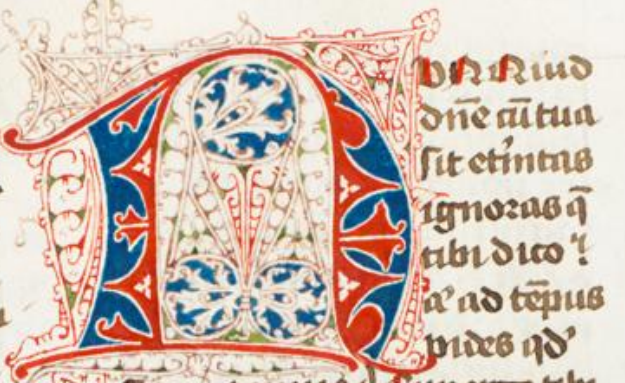 Nunquid
dn̄e cū tua
sit et̄nitas
ignoras q̄
tibi dico
ad tēpus
uides qd'